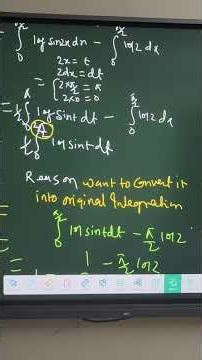 ∫₀^{π/2} log sin2x dx − ∫₀^{π/2} log2 dx
2x = t
2dx = dt
= {2×π/2 = π
2×0 = 0
= ½ ∫₀^π log sint dt − ∫₀^{π/2} log2 dx
½ ∫₀ log sint dt
Reason want to convert it
into original Integration
∫₀^{π/2} log sintdt − π/2 log2
− π/2 log2